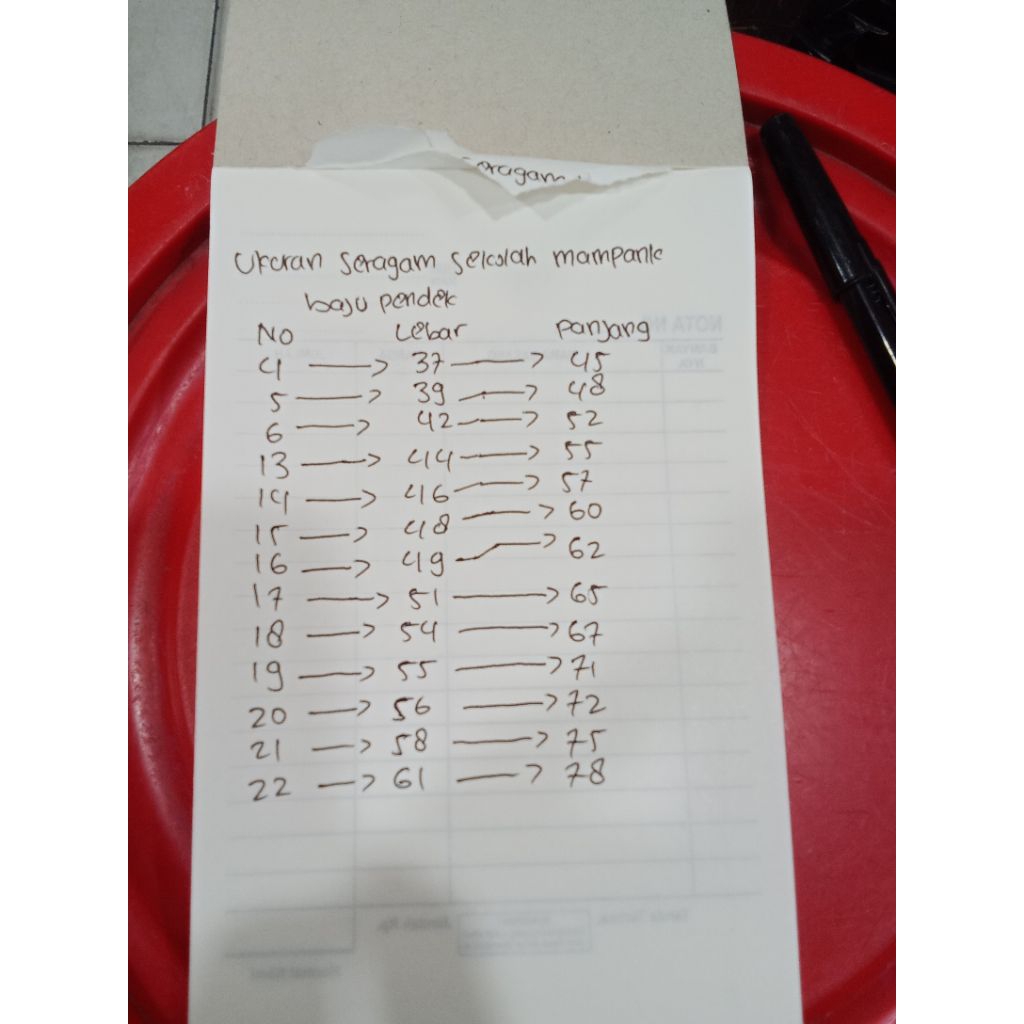 eragam
Ukuran Seragam Sekolah mampank
baju pendek
No Lebar Panjang
4 → 37 → 45
5 → 39 → 48
6 → 42 → 52
13 → 44 → 55
14 → 46 → 57
15 → 48 → 60
16 → 49 → 62
17 → 51 → 65
18 → 54 → 67
19 → 55 → 71
20 → 56 → 72
21 → 58 → 75
22 → 61 → 78